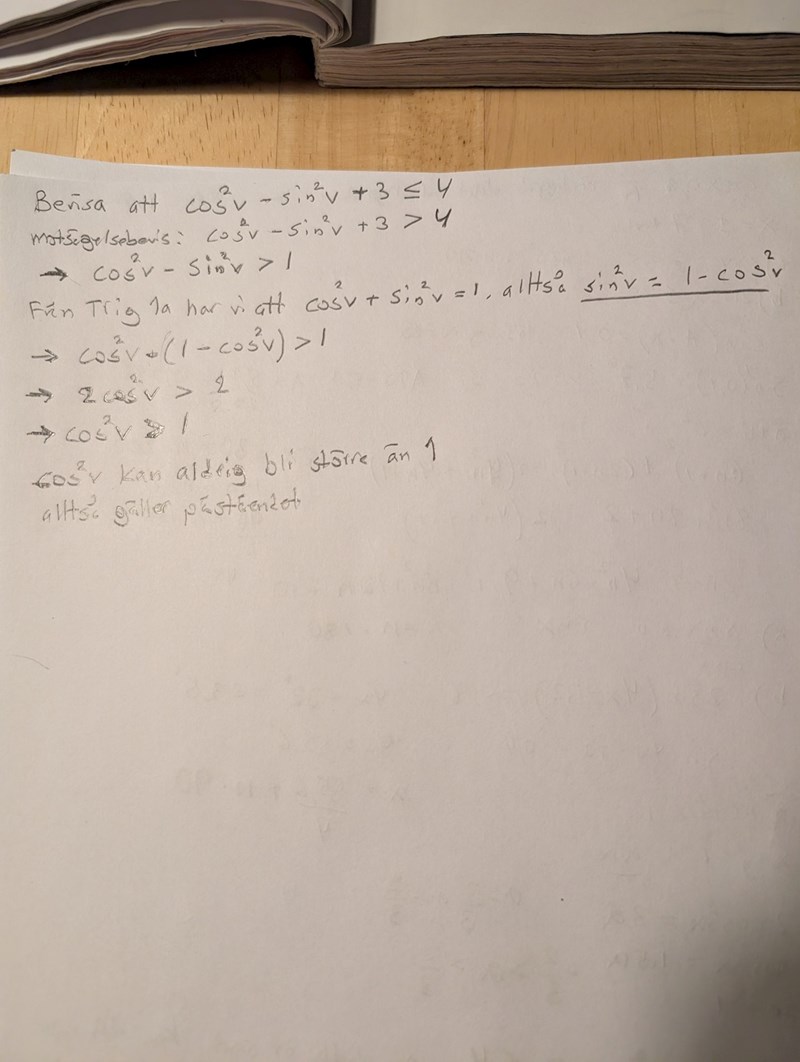 Bevisa att cos²v - sin²v + 3 ≤ 4
motsägelsebevis: cos²v - sin²v + 3 > 4
→ cos²v - sin²v > 1
Från Trig 1a har vi att cos²v + sin²v = 1, alltså sin²v = 1 - cos²v
→ cos²v - (1 - cos²v) > 1
→ 2cos²v > 2
→ cos²v > 1
cos²v kan aldrig bli större än 1
alltså gäller påståendet